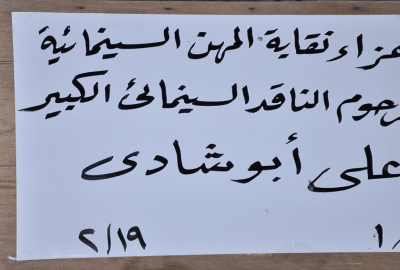 عزاء نقابة المهن السينمائية
رحوم الناقد السينمائى الكبير
على أبو شادى
٢/١٩
١/